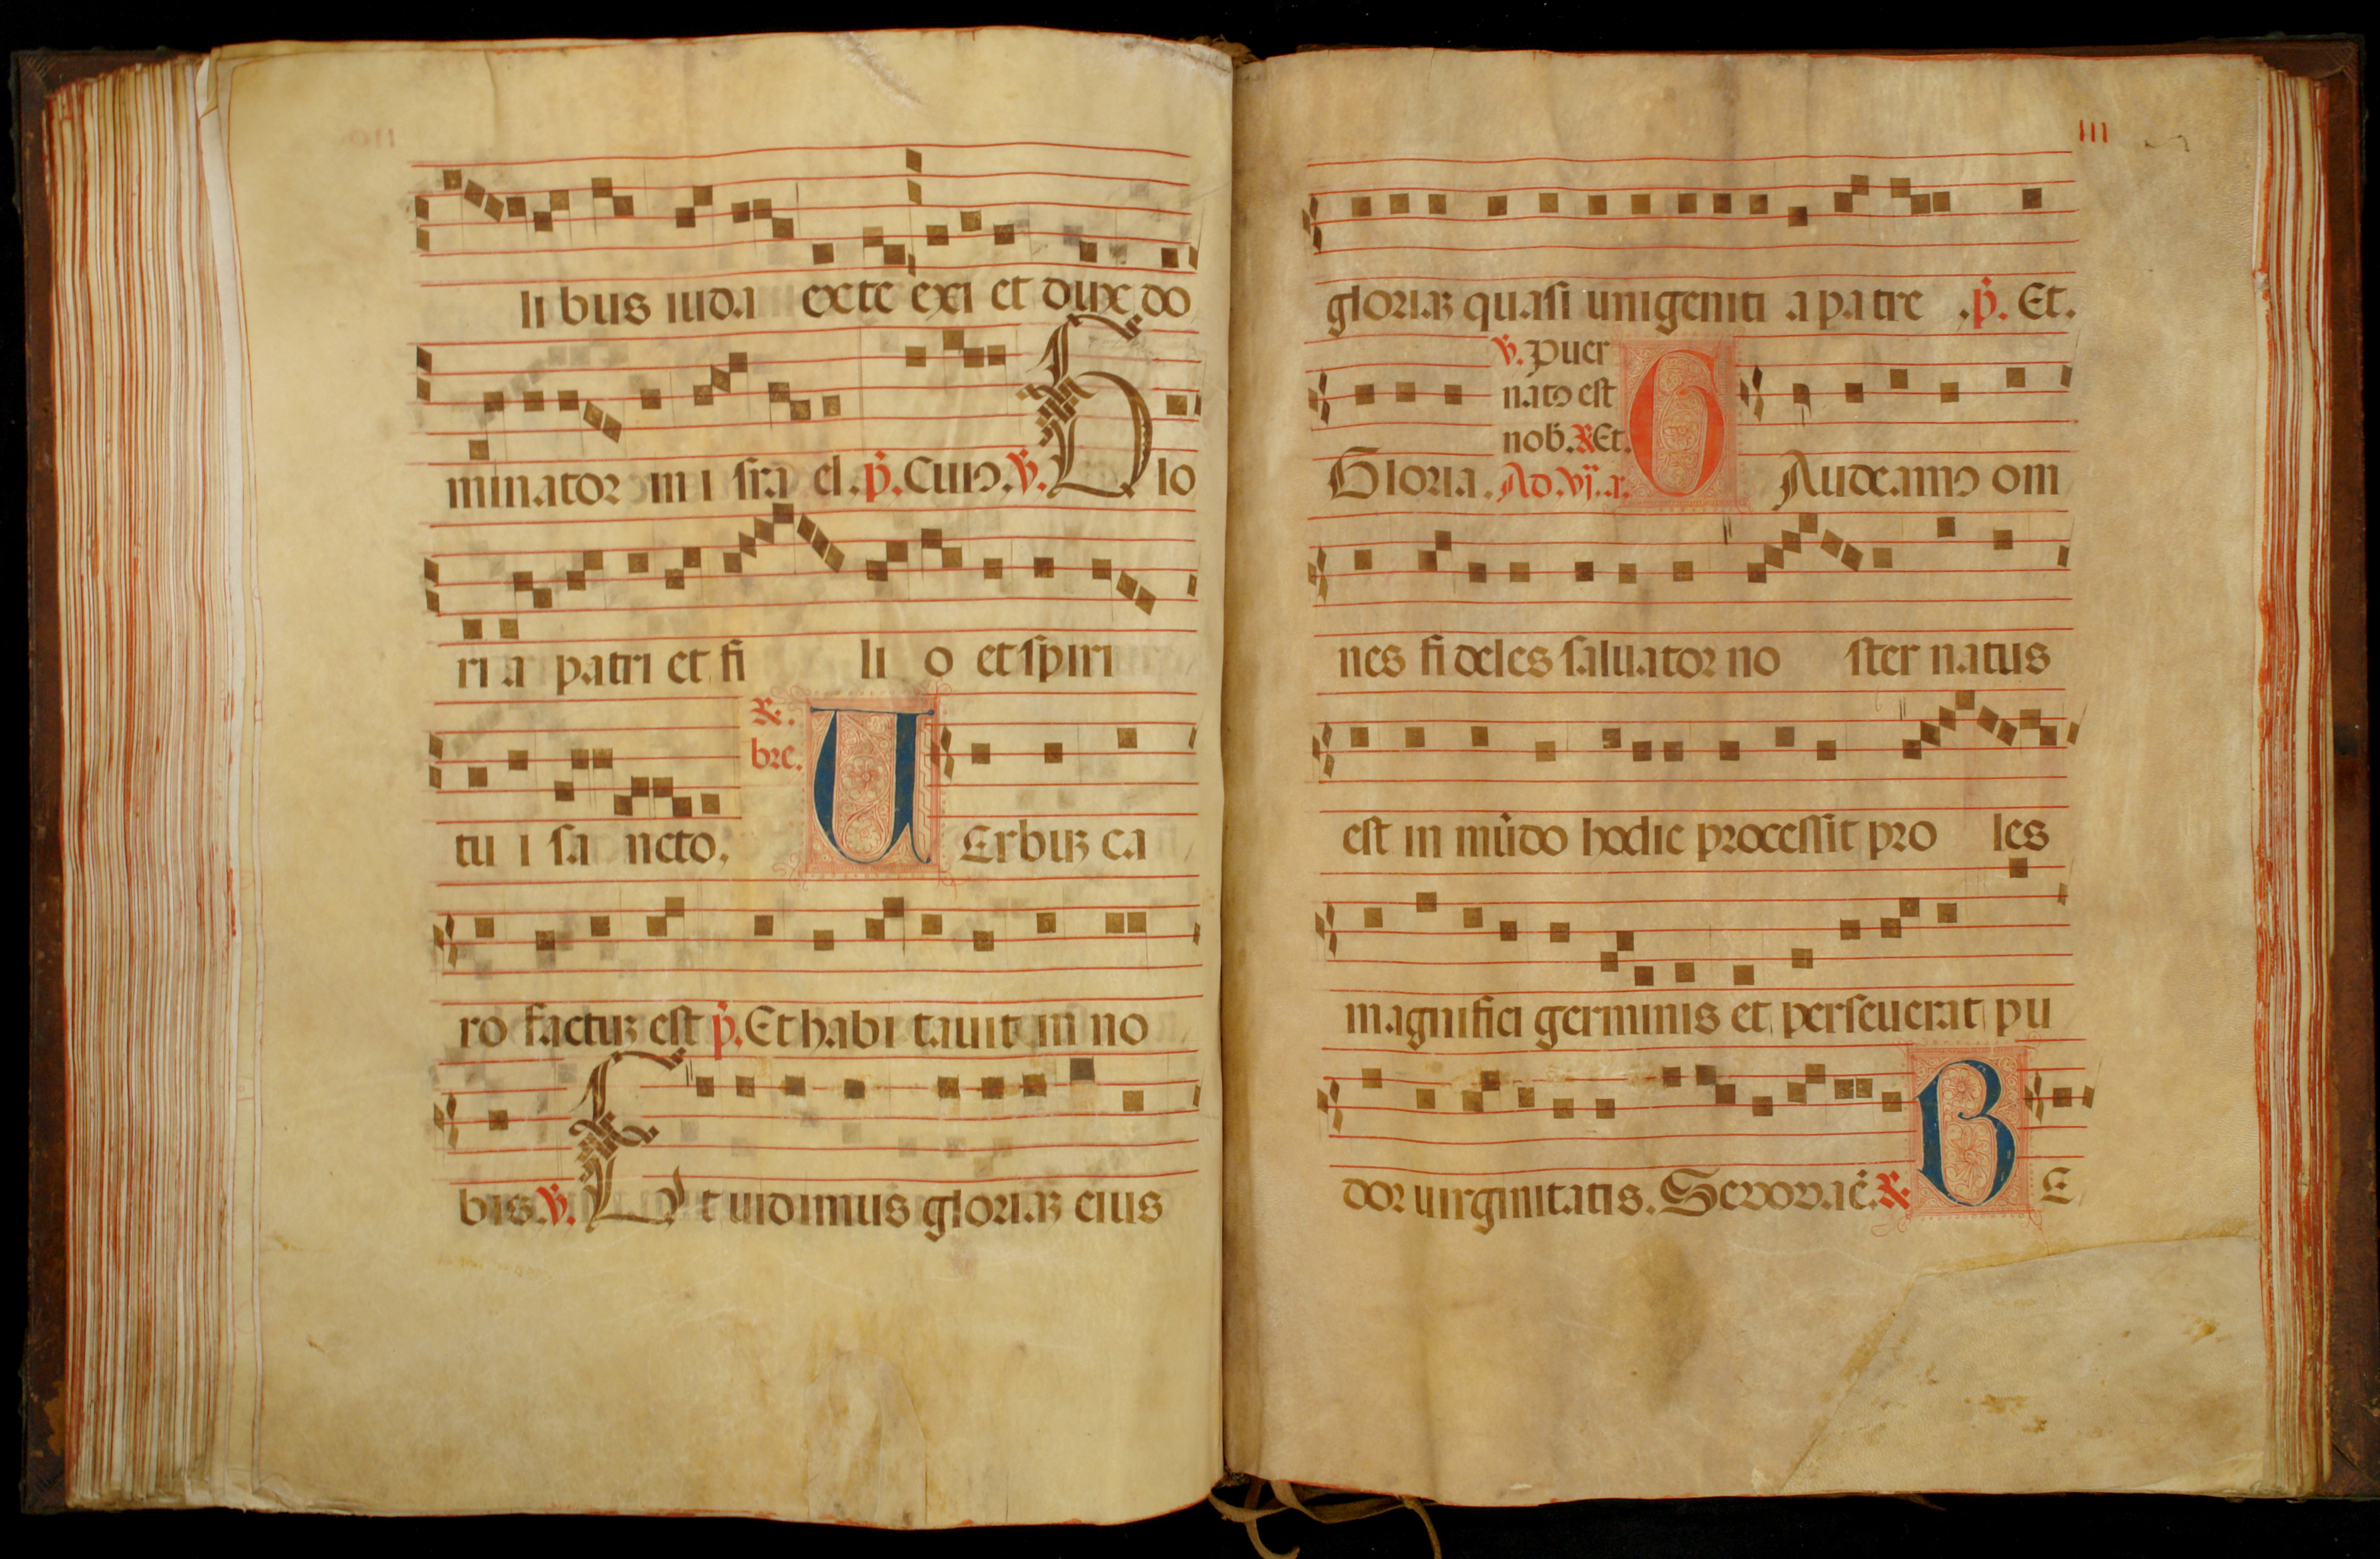 li bus iuda exte exi et dux do
minator in i sra el. p. Cuiꝰ. ℣. Glo
ri a patri et fi li o et spiri
tu i sa ncto. ℟. bre. UErbuꝫ ca
ro factuꝫ est p. Et habi tauit in no
bis. ℣. Et uidimus gloriaꝫ eius
III
gloriaꝫ quasi unigeniti a patre .p. Et.
℣. Puer
natꝰ est
nob. ℟ Et.
Gloria. Ad. vj. a. GAudeamꝰ om
nes fideles saluator no ster natus
est in mūdo hodie processit pro les
magnifici germinis et perseuerat pu
dor uirginitatis. Seuouae. ℟ BE